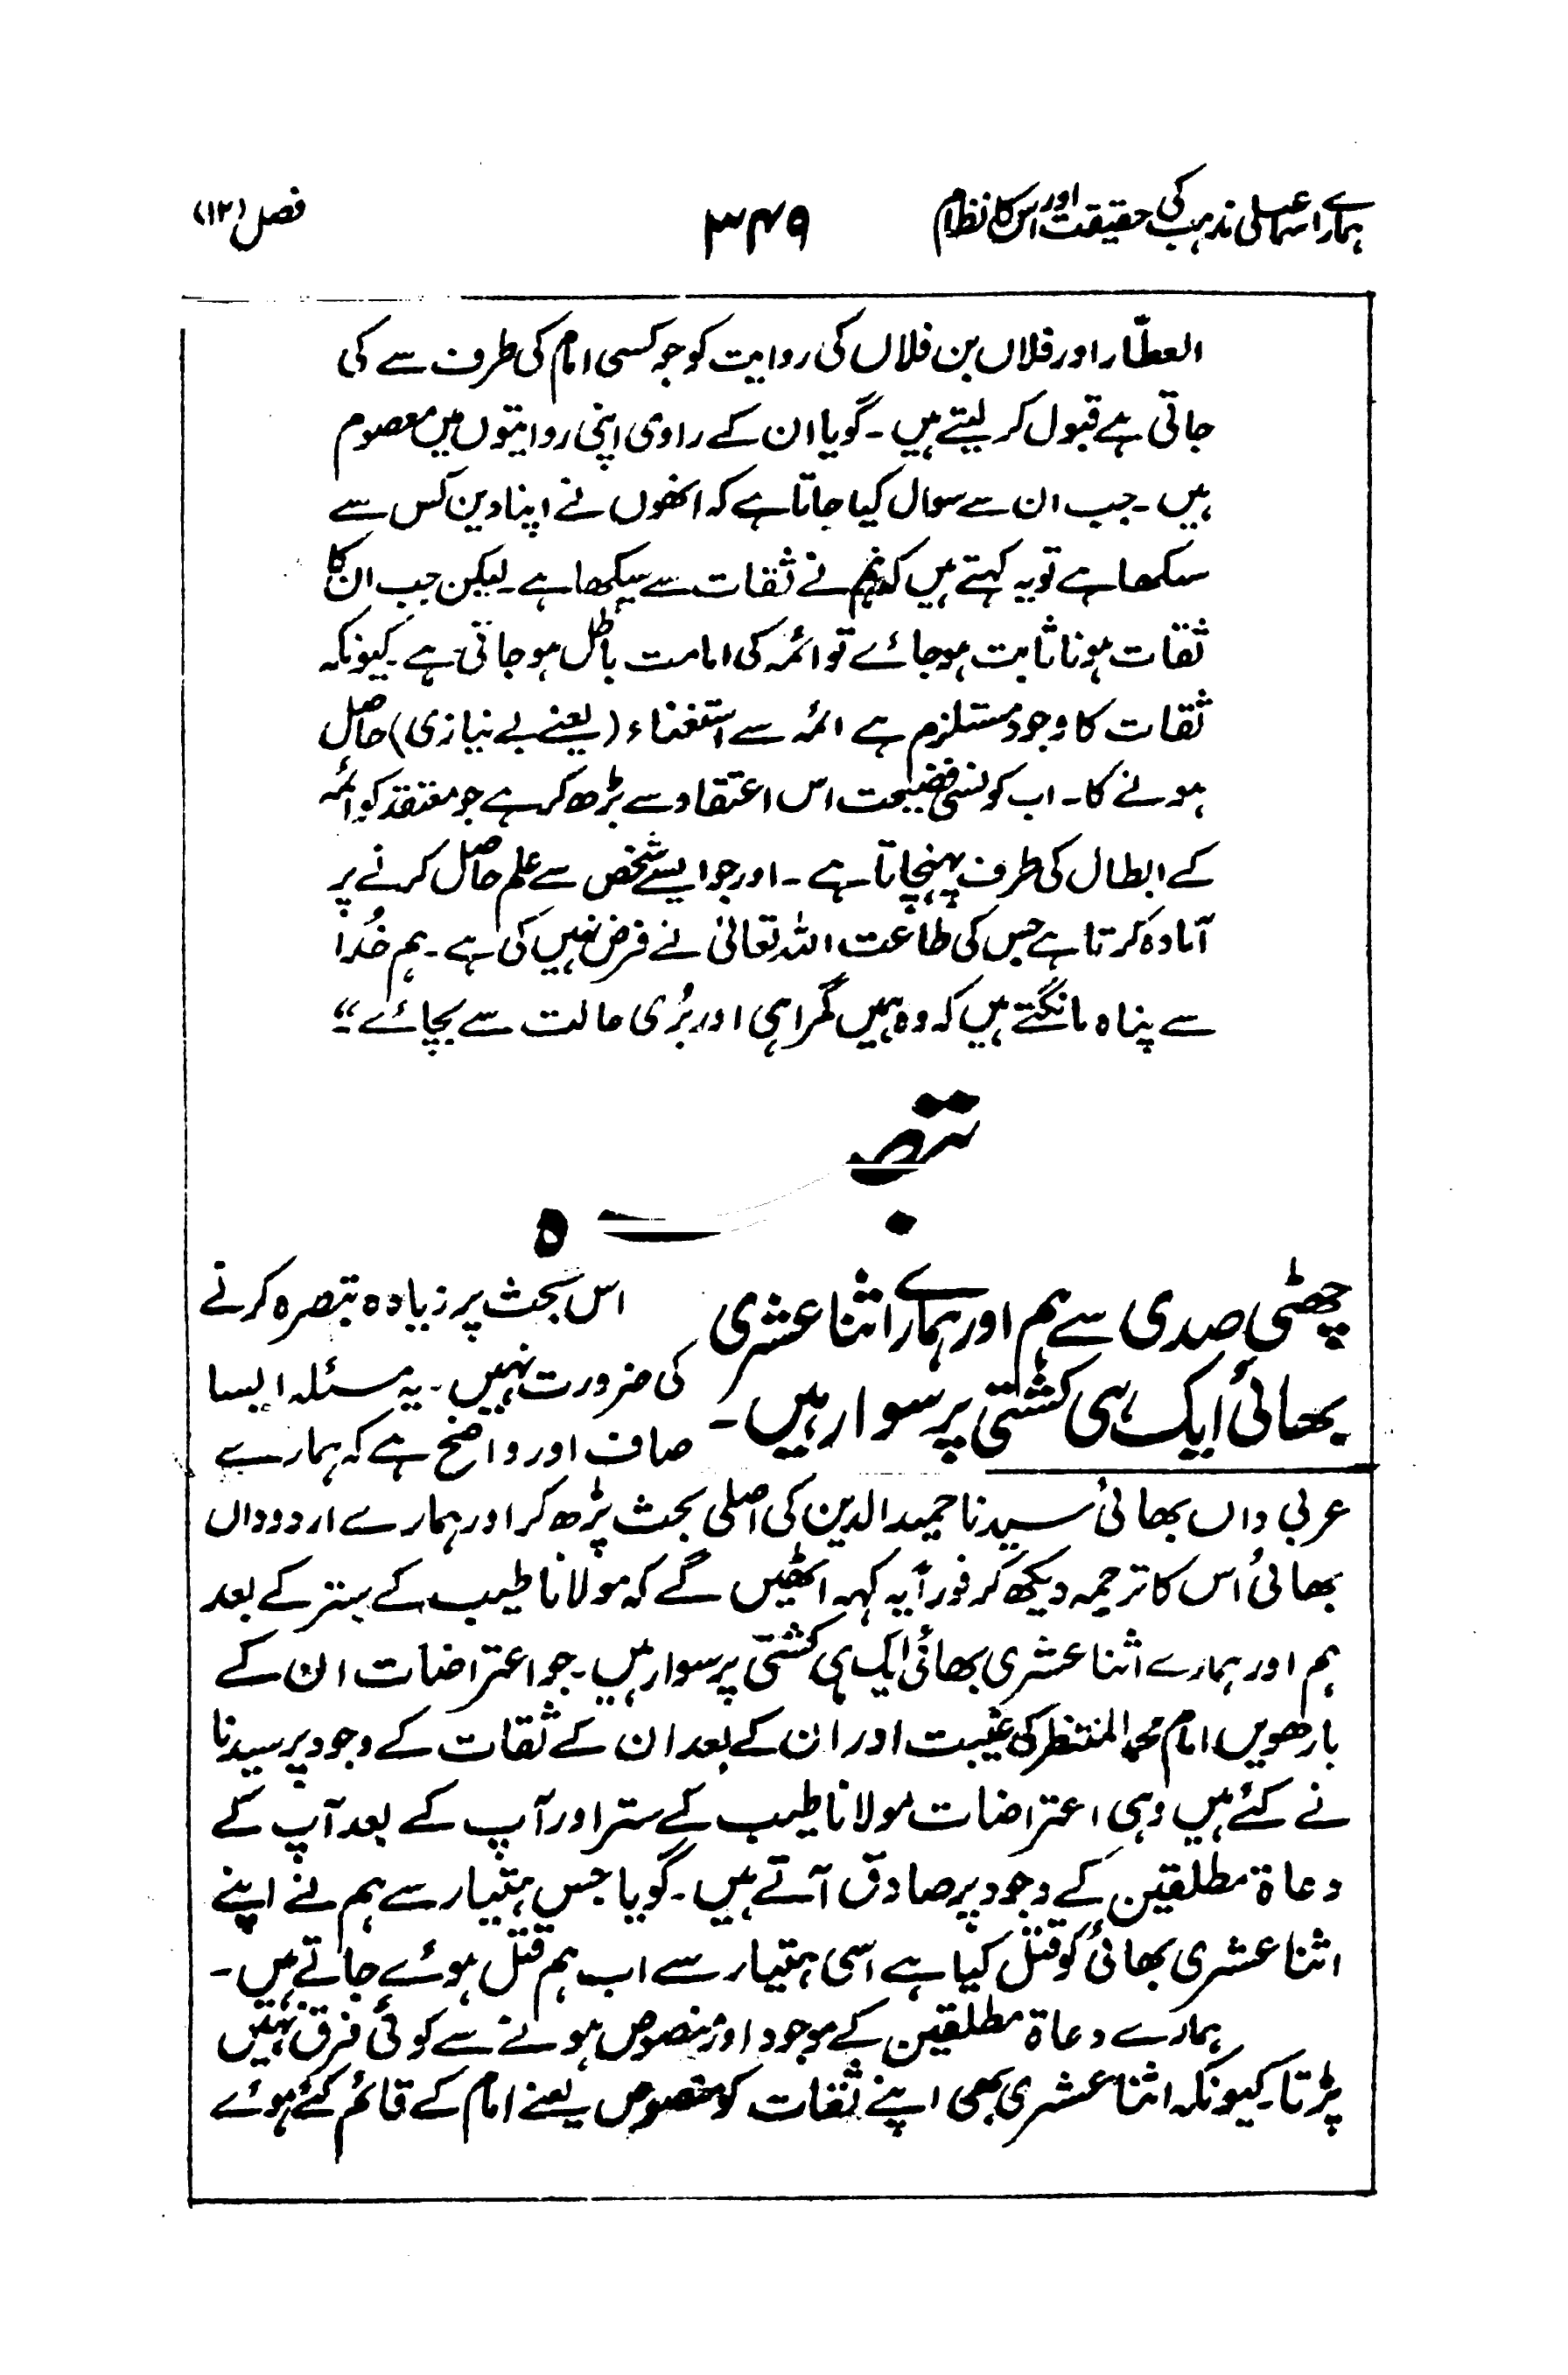 ہمارے اسماعیلی مذہب کی حقیقت اور اس کا نظام
۳۴۹
فصل (۱۲)
العطّار اور فلاں بن فلاں کی روایت کو جو کسی امام کی طرف سے کی
جاتی ہے قبول کر لیتے ہیں ۔ گویا ان کے راوی اپنی روایتوں میں معصوم
ہیں ۔ جب ان سے سوال کیا جاتا ہے کہ انھوں نے اپنا دین کس سے
سیکھا ہے تو یہ کہتے ہیں کہ ہم نے ثقات سے سیکھا ہے ۔ لیکن جب ان کا
ثقات ہونا ثابت ہو جائے تو ائمہ کی امامت باطل ہو جاتی ہے ۔ کیونکہ
ثقات کا وجود مستلزم ہے ائمہ سے استغناء (یعنے بے نیازی) حاصل
ہونے کا ۔ اب کونسی فضیحت اس اعتقاد سے بڑھ کر ہے جو معتقد کو ائمہ
کے ابطال کی طرف پہنچاتا ہے ۔ اور جو ایسے شخص سے علم حاصل کرنے پر
آمادہ کرتا ہے جس کی طاعت اللہ تعالیٰ نے فرض نہیں کی ہے ۔ ہم خُدا
سے پناہ مانگتے ہیں کہ وہ ہمیں گمراہی اور بُری حالت سے بچائے ۔“
تبصرہ
چھٹی صدی سے ہم اور ہمارے اثنا عشری
بھائی ایک ہی کشتی پر سوار ہیں ۔
اس بحث پر زیادہ تبصرہ کرنے
کی ضرورت نہیں ۔ یہ مسئلہ ایسا
صاف اور واضح ہے کہ ہمارے
عربی داں بھائی سیدنا حمید الدین کی اصلی بحث پڑھ کر اور ہمارے اردو داں
بھائی اُس کا ترجمہ دیکھ کر فوراً یہ کہہ اٹھیں گے کہ مولانا طیب کے ستر کے بعد
ہم اور ہمارے اثنا عشری بھائی ایک ہی کشتی پر سوار ہیں ۔ جو اعتراضات ان کے
بارھویں امام محمد المنتظر کی غیبت اور ان کے بعد ان کے ثقات کے وجود پر سیدنا
نے کئے ہیں وہی اعتراضات مولانا طیب کے ستر اور آپ کے بعد آپ کے
دعاۃ مطلقین کے وجود پر صادق آتے ہیں ۔ گویا جس ہتیار سے ہم نے اپنے
اثنا عشری بھائی کو قتل کیا ہے اسی ہتیار سے اب ہم قتل ہوئے جاتے ہیں ۔
ہمارے دعاۃ مطلقین کے موجود اور منصوص ہونے سے کوئی فرق نہیں
پڑتا ۔ کیونکہ اثنا عشری بھی اپنے ثقات کو منصوص یعنے امام کے قائم کئے ہوئے